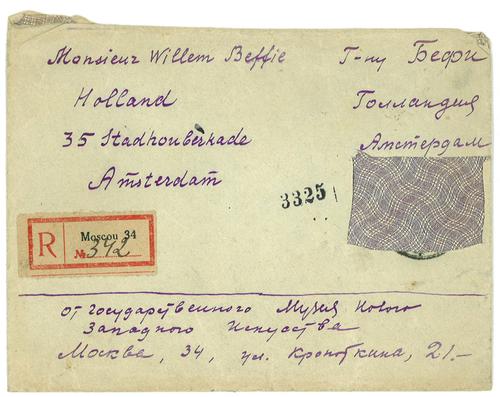 Monsieur Willem Beffie
Г-ну Бефи
Holland
Голландия
35 Stadhouberkade
Амстердам
Amsterdam
3325
R Moscou 34
№ 342
от государственного Музея Нового
Западного Искусства
Москва, 34, ул. Кропоткина, 21.-